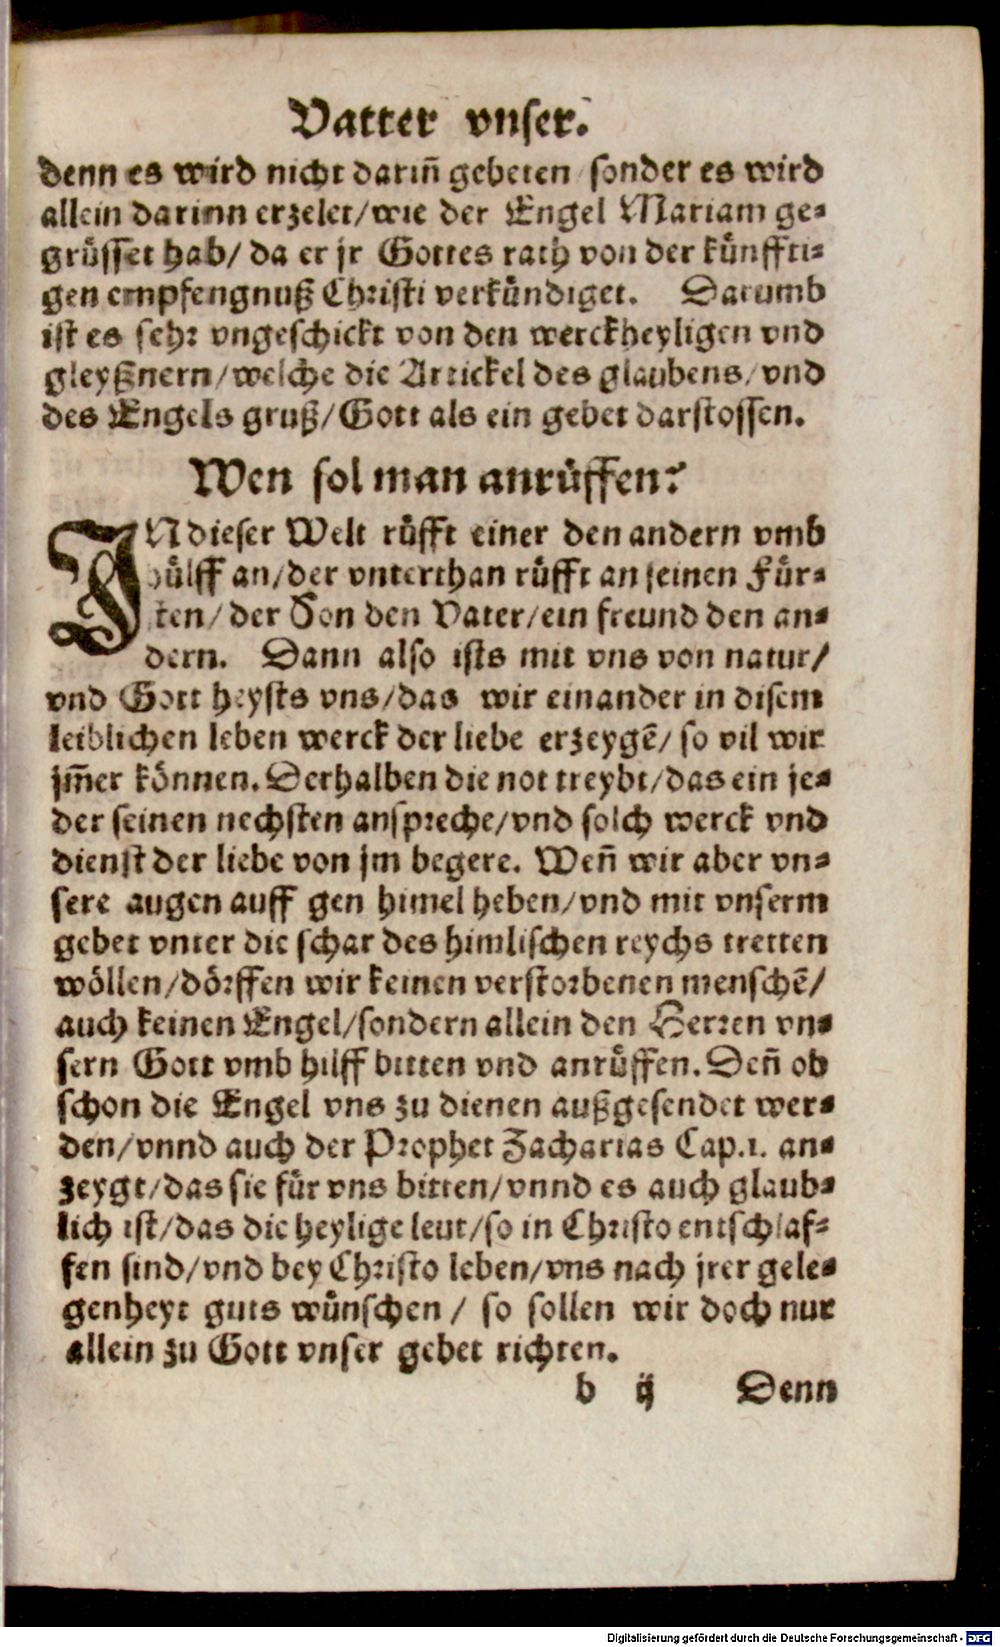 Vatter vnser.
denn es wird nicht dariñ gebeten / sonder es wird
allein darinn erzelet/wie der Engel Mariam ge⸗
grüsset hab/ da er jr Gottes rath von der künffti⸗
gen empfengnuß Christi verkündiget. Darumb
ist es sehr vngeschickt von den werckheyligen vnd
gleyßnern/welche die Artickel des glaubens/vnd
des Engels gruß/Gott als ein gebet darstossen.
Wen sol man anrüffen?
IN dieser Welt rüfft einer den andern vmb
hülff an/der vnterthan rüfft an seinen Für⸗
sten/der Son den Vater/ein freund den an⸗
dern. Dann also ists mit vns von natur/
vnd Gott heysts vns/das wir einander in disem
leiblichen leben werck der liebe erzeygē/so vil wir
jm̄er können. Derhalben die not treybt/das ein je⸗
der seinen nechsten anspreche/vnd solch werck vnd
dienst der liebe von jm begere. Weñ wir aber vn⸗
sere augen auff gen himel heben/vnd mit vnserm
gebet vnter die schar des himlischen reychs tretten
wöllen/dörffen wir keinen verstorbenen menschē/
auch keinen Engel/sondern allein den Herren vn⸗
sern Gott vmb hilff bitten vnd anrüffen. Deñ ob
schon die Engel vns zu dienen außgesendet wer⸗
den/vnnd auch der Prophet Zacharias Cap.1. an⸗
zeygt/das sie für vns bitten/vnnd es auch glaub⸗
lich ist/das die heylige leut/so in Christo entschlaf⸗
fen sind/vnd bey Christo leben/vns nach jrer gele⸗
genheyt guts wünschen / so sollen wir doch nur
allein zu Gott vnser gebet richten.
b ij Denn
Digitalisierung gefördert durch die Deutsche Forschungsgemeinschaft - DFG